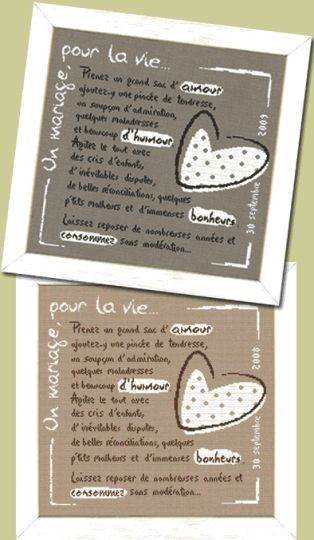 Un mariage,
pour la vie...
Prenez un grand sac d'amour
ajoutez-y une pincée de tendresse,
un soupçon d'admiration,
quelques maladresses
et beaucoup d'humour.
Agitez le tout avec
des cris d'enfants,
d'inévitables disputes,
de belles réconciliations, quelques
p'tits malheurs et d'immenses bonheurs.
Laissez reposer de nombreuses années et
consommez sans modération...
30 septembre 2009
Un mariage,
pour la vie...
Prenez un grand sac d'amour
ajoutez-y une pincée de tendresse,
un soupçon d'admiration,
quelques maladresses
et beaucoup d'humour.
Agitez le tout avec
des cris d'enfants,
d'inévitables disputes,
de belles réconciliations, quelques
p'tits malheurs et d'immenses bonheurs.
Laissez reposer de nombreuses années et
consommez sans modération...
30 septembre 2008